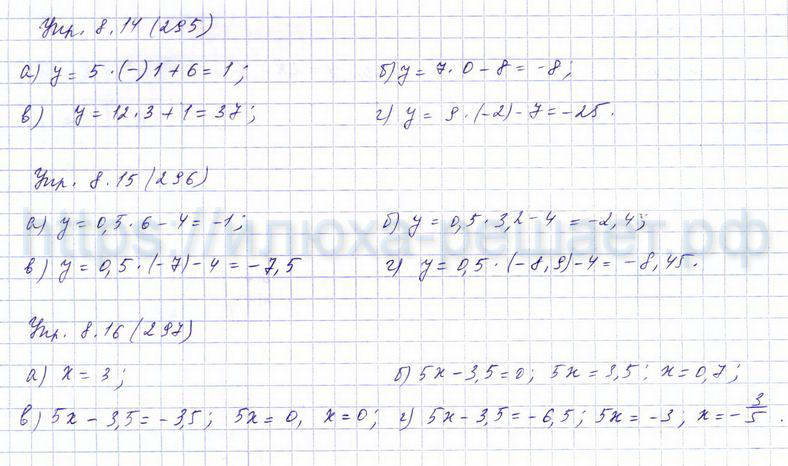 Упр. 8.14 (295)
а) y = 5 · (-)1 + 6 = 1; б) y = 7 · 0 - 8 = -8;
в) y = 12 · 3 + 1 = 37; г) y = 9 · (-2) - 7 = -25.
Упр. 8.15 (296)
а) y = 0,5 · 6 - 4 = -1; б) y = 0,5 · 3,2 - 4 = -2,4;
https://илюха-решает.рф
в) y = 0,5 · (-7) - 4 = -7,5 г) y = 0,5 · (-8,9) - 4 = -8,45.
Упр. 8.16 (297)
а) x = 3; б) 5x - 3,5 = 0; 5x = 3,5; x = 0,7;
в) 5x - 3,5 = -3,5; 5x = 0, x = 0; г) 5x - 3,5 = -6,5; 5x = -3; x = -3/5.